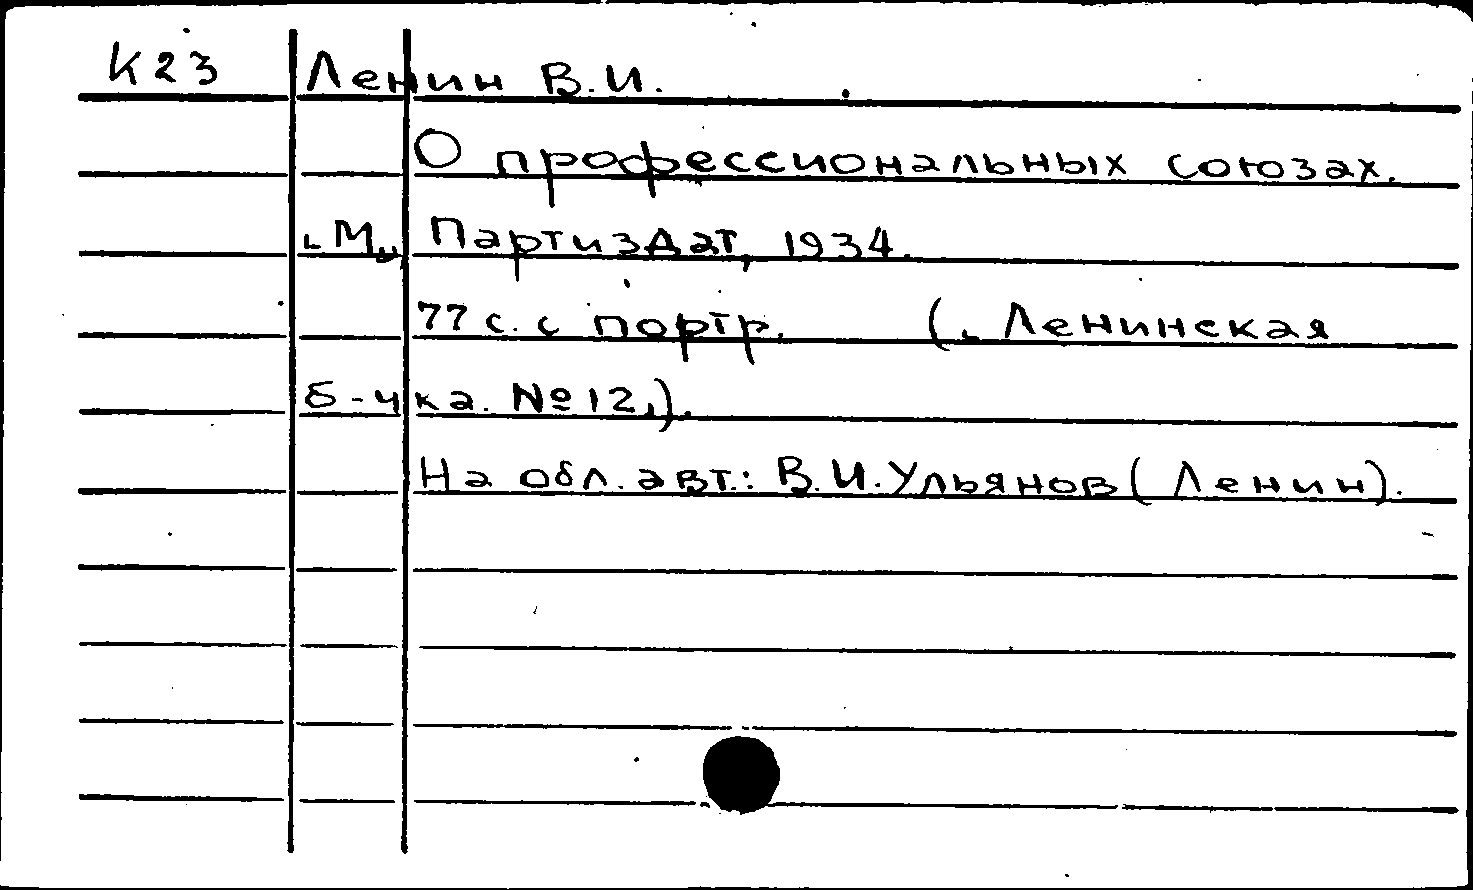 К23 Ленин В.И.
О профессиональных союзах.
[М.], Партиздат, 1934.
77 с. с портр. ([Ленинская
б-чка. №12]).
На обл. авт.: В.И.Ульянов (Ленин).